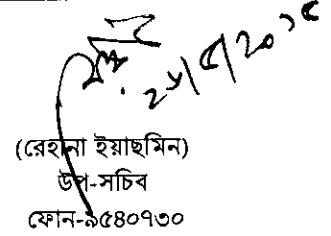 ২৮/৫/২০১৫
(রেহানা ইয়াছমিন)
উপ-সচিব
ফোন-৯৫৪০৭৩০